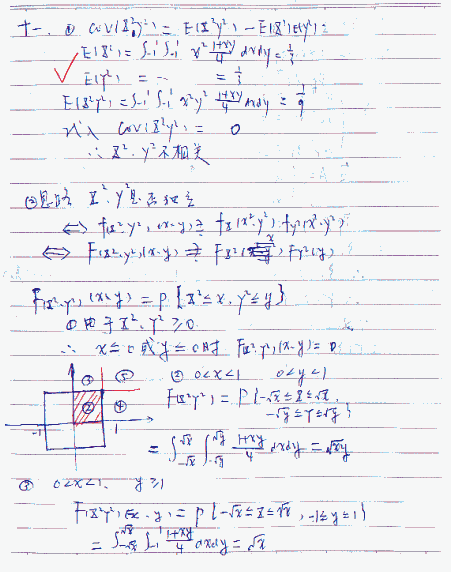 十一. ① COV(X², Y²) = E(X²Y²) - E(X²)E(Y²) =
E(X²) = ∫₋₁¹ ∫₋₁¹ x² (1+xy)/4 dxdy = 1/3
E(Y²) = ... = 1/3
E(X²Y²) = ∫₋₁¹ ∫₋₁¹ x²y² (1+xy)/4 dxdy = 1/9
所以 COV(X²Y²) = 0
∴ X², Y² 不相关
② X², Y²是否独立
⟺ f(X², Y²)(x·y) = fX²(x², y²) · fY²(x², y²)
⟺ F(X², Y²)(x·y) = FX²(x) FY²(y)
F(X², Y²)(x·y) = P{X² ≤ x, Y² ≤ y}
①由于 X², Y² ≥ 0
∴ x ≤ 0 或 y ≤ 0时 F(X², Y²)(x·y) = 0
① ⑤ ② ④ -1 1
② 0<x<1 0<y<1
F(X²Y²) = P{-√x ≤ X ≤ √x,
-√y ≤ Y ≤ √y}
= ∫_{-√x}^{√x} ∫_{-√y}^{√y} (1+xy)/4 dxdy = √xy
③ 0<x<1, y ≥ 1
F(X²Y²)(x·y) = P{-√x ≤ X ≤ √x, -1 ≤ y ≤ 1}
= ∫_{-√x}^{√x} ∫₋₁¹ (1+xy)/4 dxdy = √x